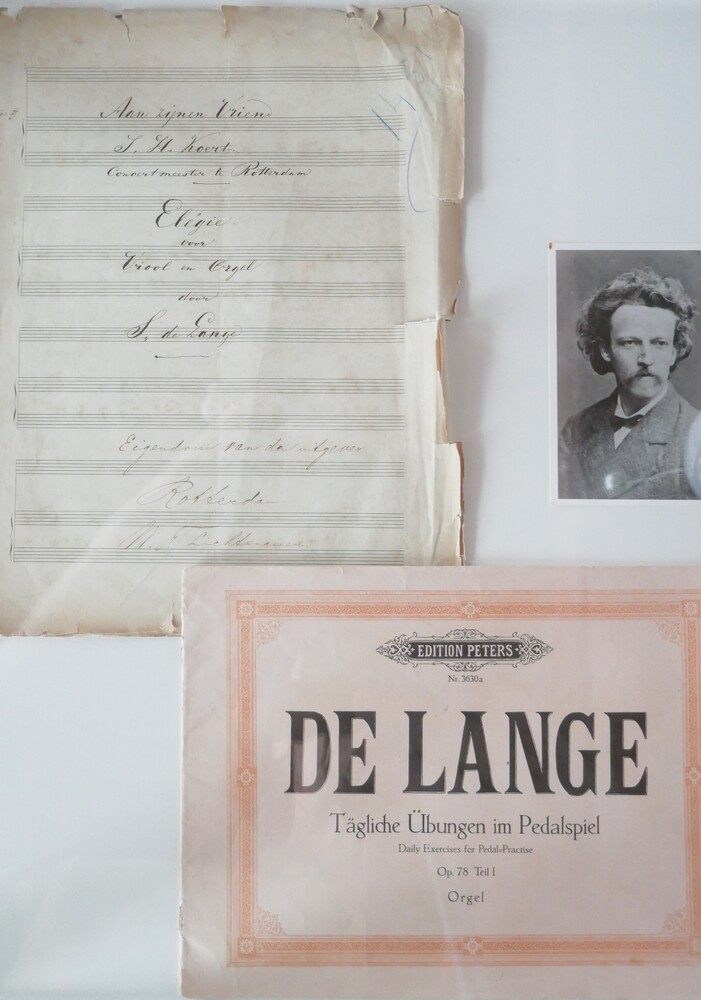 Aan zijnen Vriend
Concertmeester te Rotterdam
Elégie
voor
Viool en Orgel
door
S. de Lange
Eigendom van den uitgever
Rotterdam
EDITION PETERS
Nr. 3630a
DE LANGE
Tägliche Übungen im Pedalspiel
Daily Exercises for Pedal=Practise
Op. 78 Teil I
Orgel